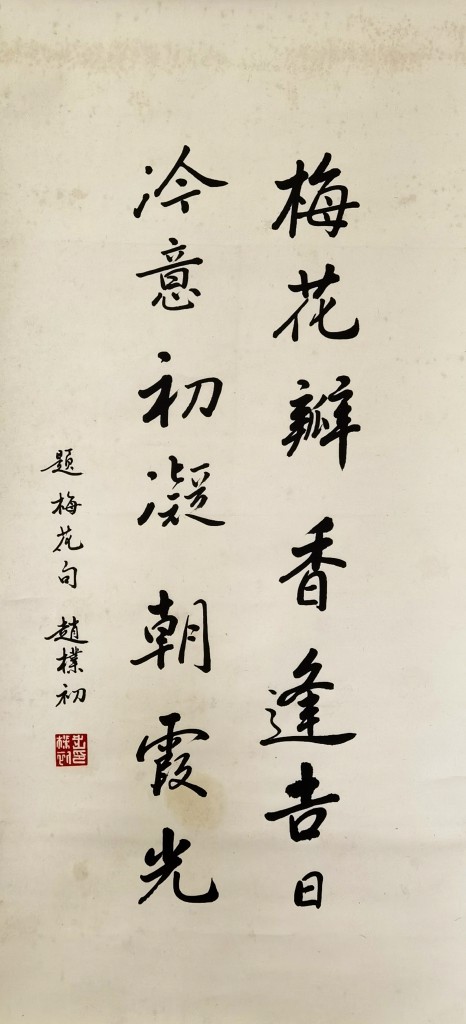 梅花瓣香逢吉日
冷意初凝朝霞光
題梅花句 趙樸初